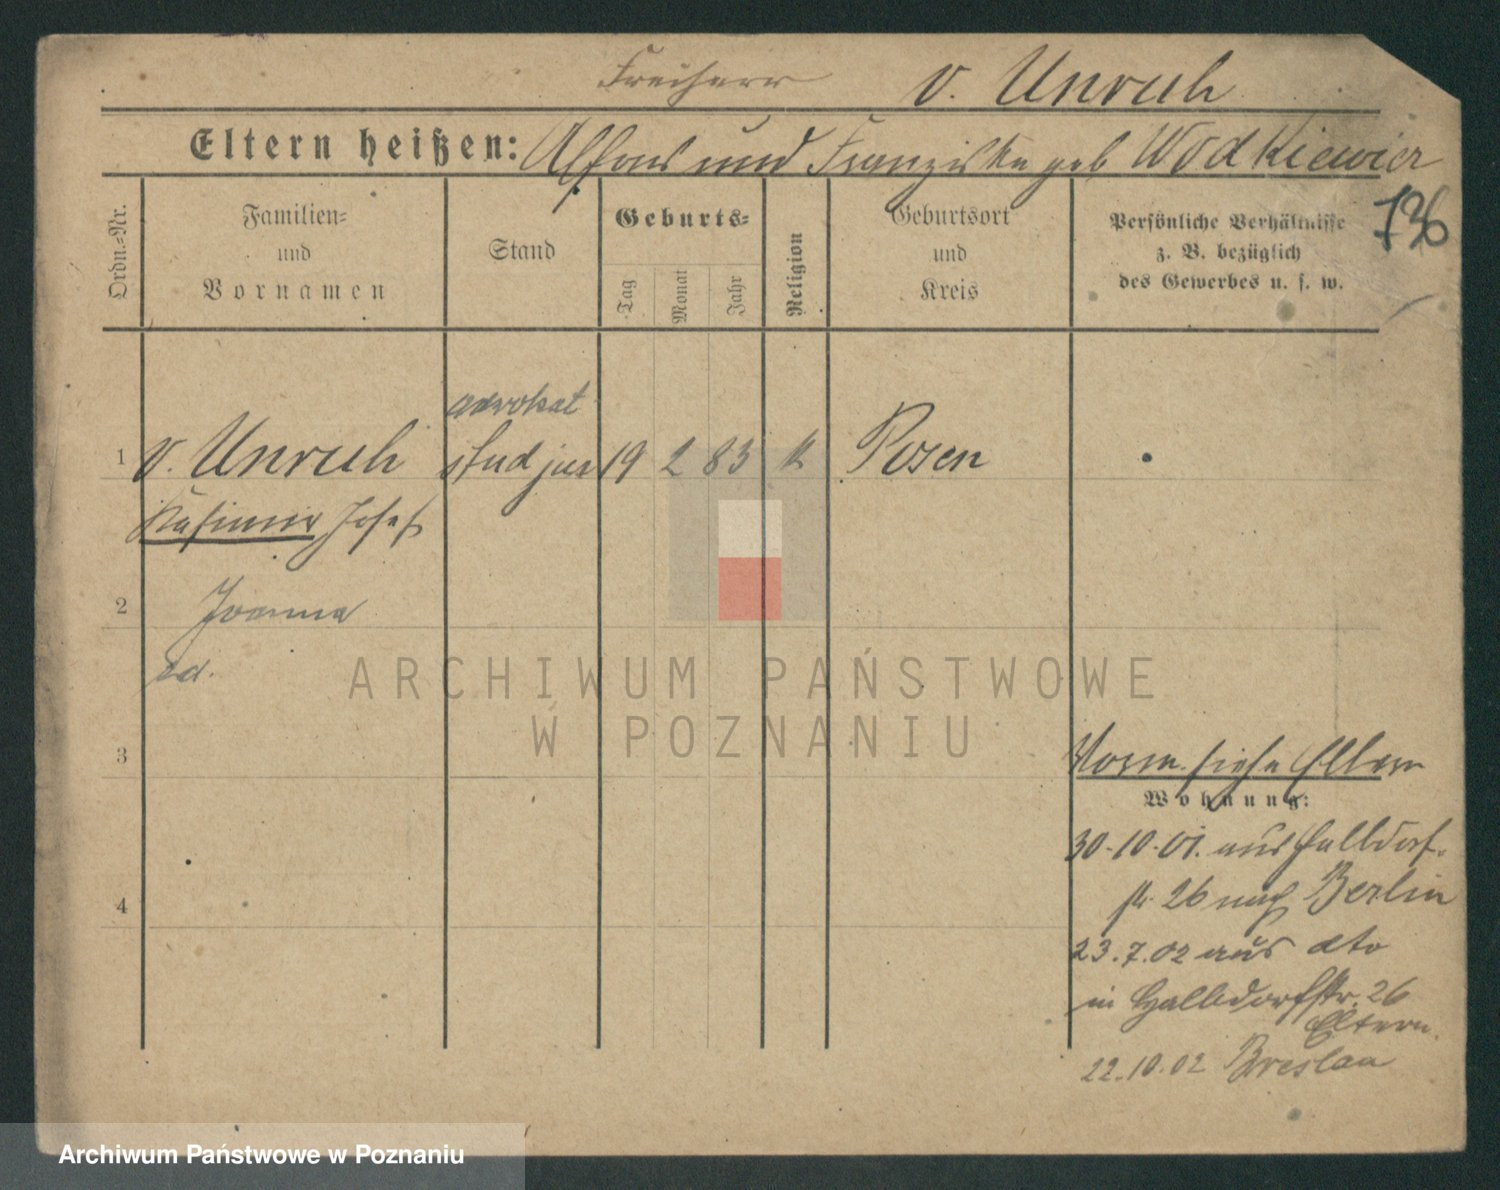 Freiherr v. Unruh
Eltern heißen: Alfons und Franziska geb Wodkiewicz
136
Ordn.-Nr.
Familien-
und
Vornamen
Stand
Geburts-
Tag
Monat
Jahr
Religion
Geburtsort
und
Kreis
Persönliche Verhältnisse
z. B. bezüglich
des Gewerbes u. s. w.
advokat
1 v. Unruh stud jur 19 2 83 k Posen
Kasimir Josef
2 Joanna
ARCHIWUM PAŃSTWOWE
W POZNANIU
3
Vorm. siehe Eltern
Wohnung:
30.10.01. aus Halbdorf-
str. 26 nach Berlin
4
23.7.02 aus dto
in Halbdorfstr. 26
Eltern.
22.10.02 Breslau
Archiwum Państwowe w Poznaniu